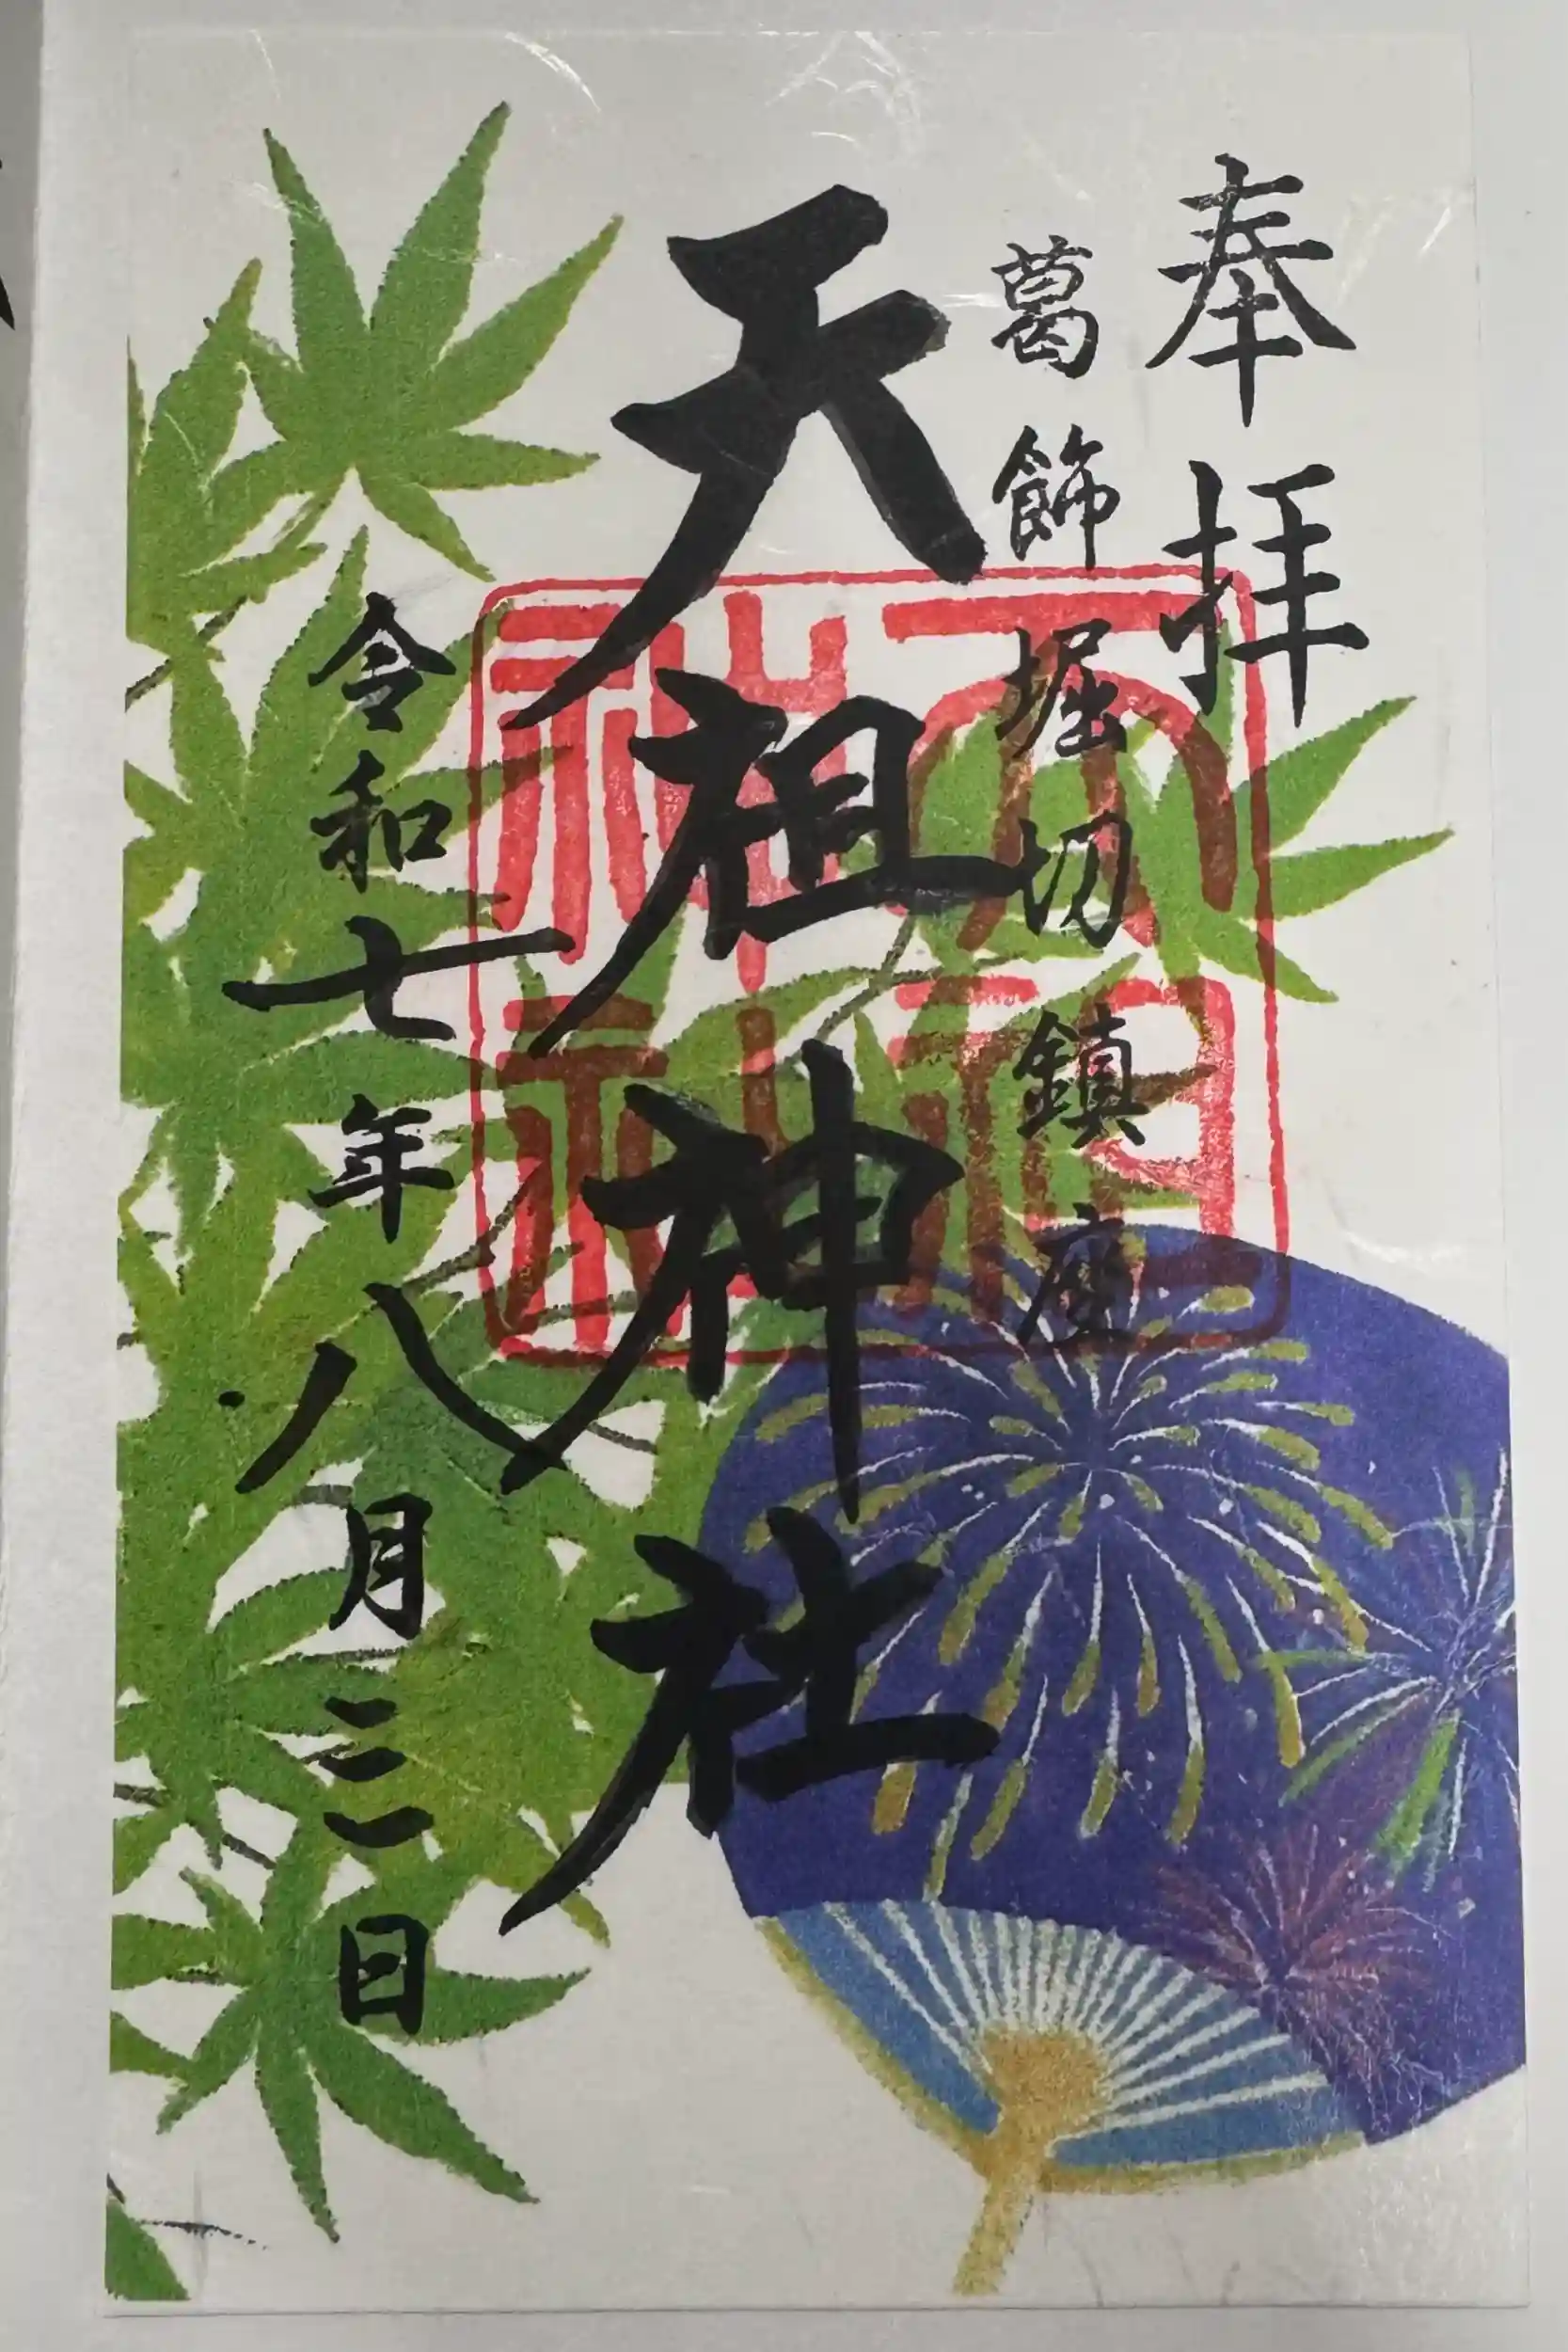 奉拝
葛飾堀切鎮座
天祖神社
令和七年八月三一日
天祖
神社